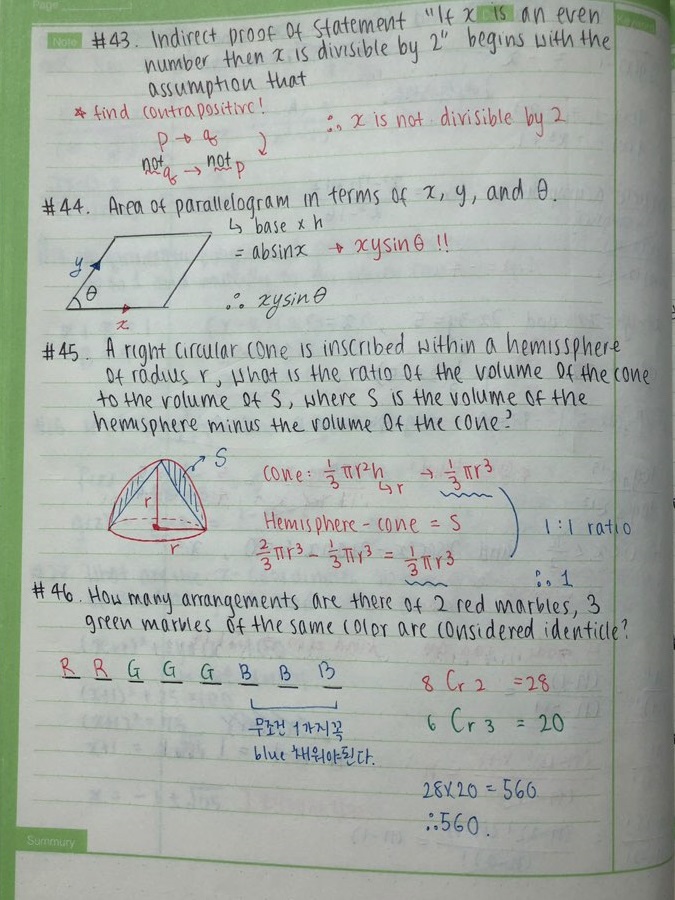 Page
Note
#43. Indirect proof of statement "If x is an even
number then x is divisible by 2" begins with the
assumption that
* find contrapositive!
∴ x is not divisible by 2
p → q
not q → not p
#44. Area of parallelogram in terms of x, y, and θ.
↳ base x h
= absinx → xysinθ !!
y
θ
∴ xysinθ
x
#45. A right circular cone is inscribed within a hemissphere
of radius r, what is the ratio of the volume of the cone
to the volume of S, where S is the volume of the
hemisphere minus the volume of the cone?
S
cone: 1/3 πr²h → 1/3 πr³
↳ r
r
Hemisphere - cone = S
1:1 ratio
r
2/3 πr³ - 1/3 πr³ = 1/3 πr³
∴ 1
#46. How many arrangements are there of 2 red marbles, 3
green marbles of the same color are considered identicle?
R R G G G B B B
8 Cr 2 = 28
6 Cr 3 = 20
무조건 1가지꼭
blue 채워야된다.
28x20 = 560
∴ 560.
Summury